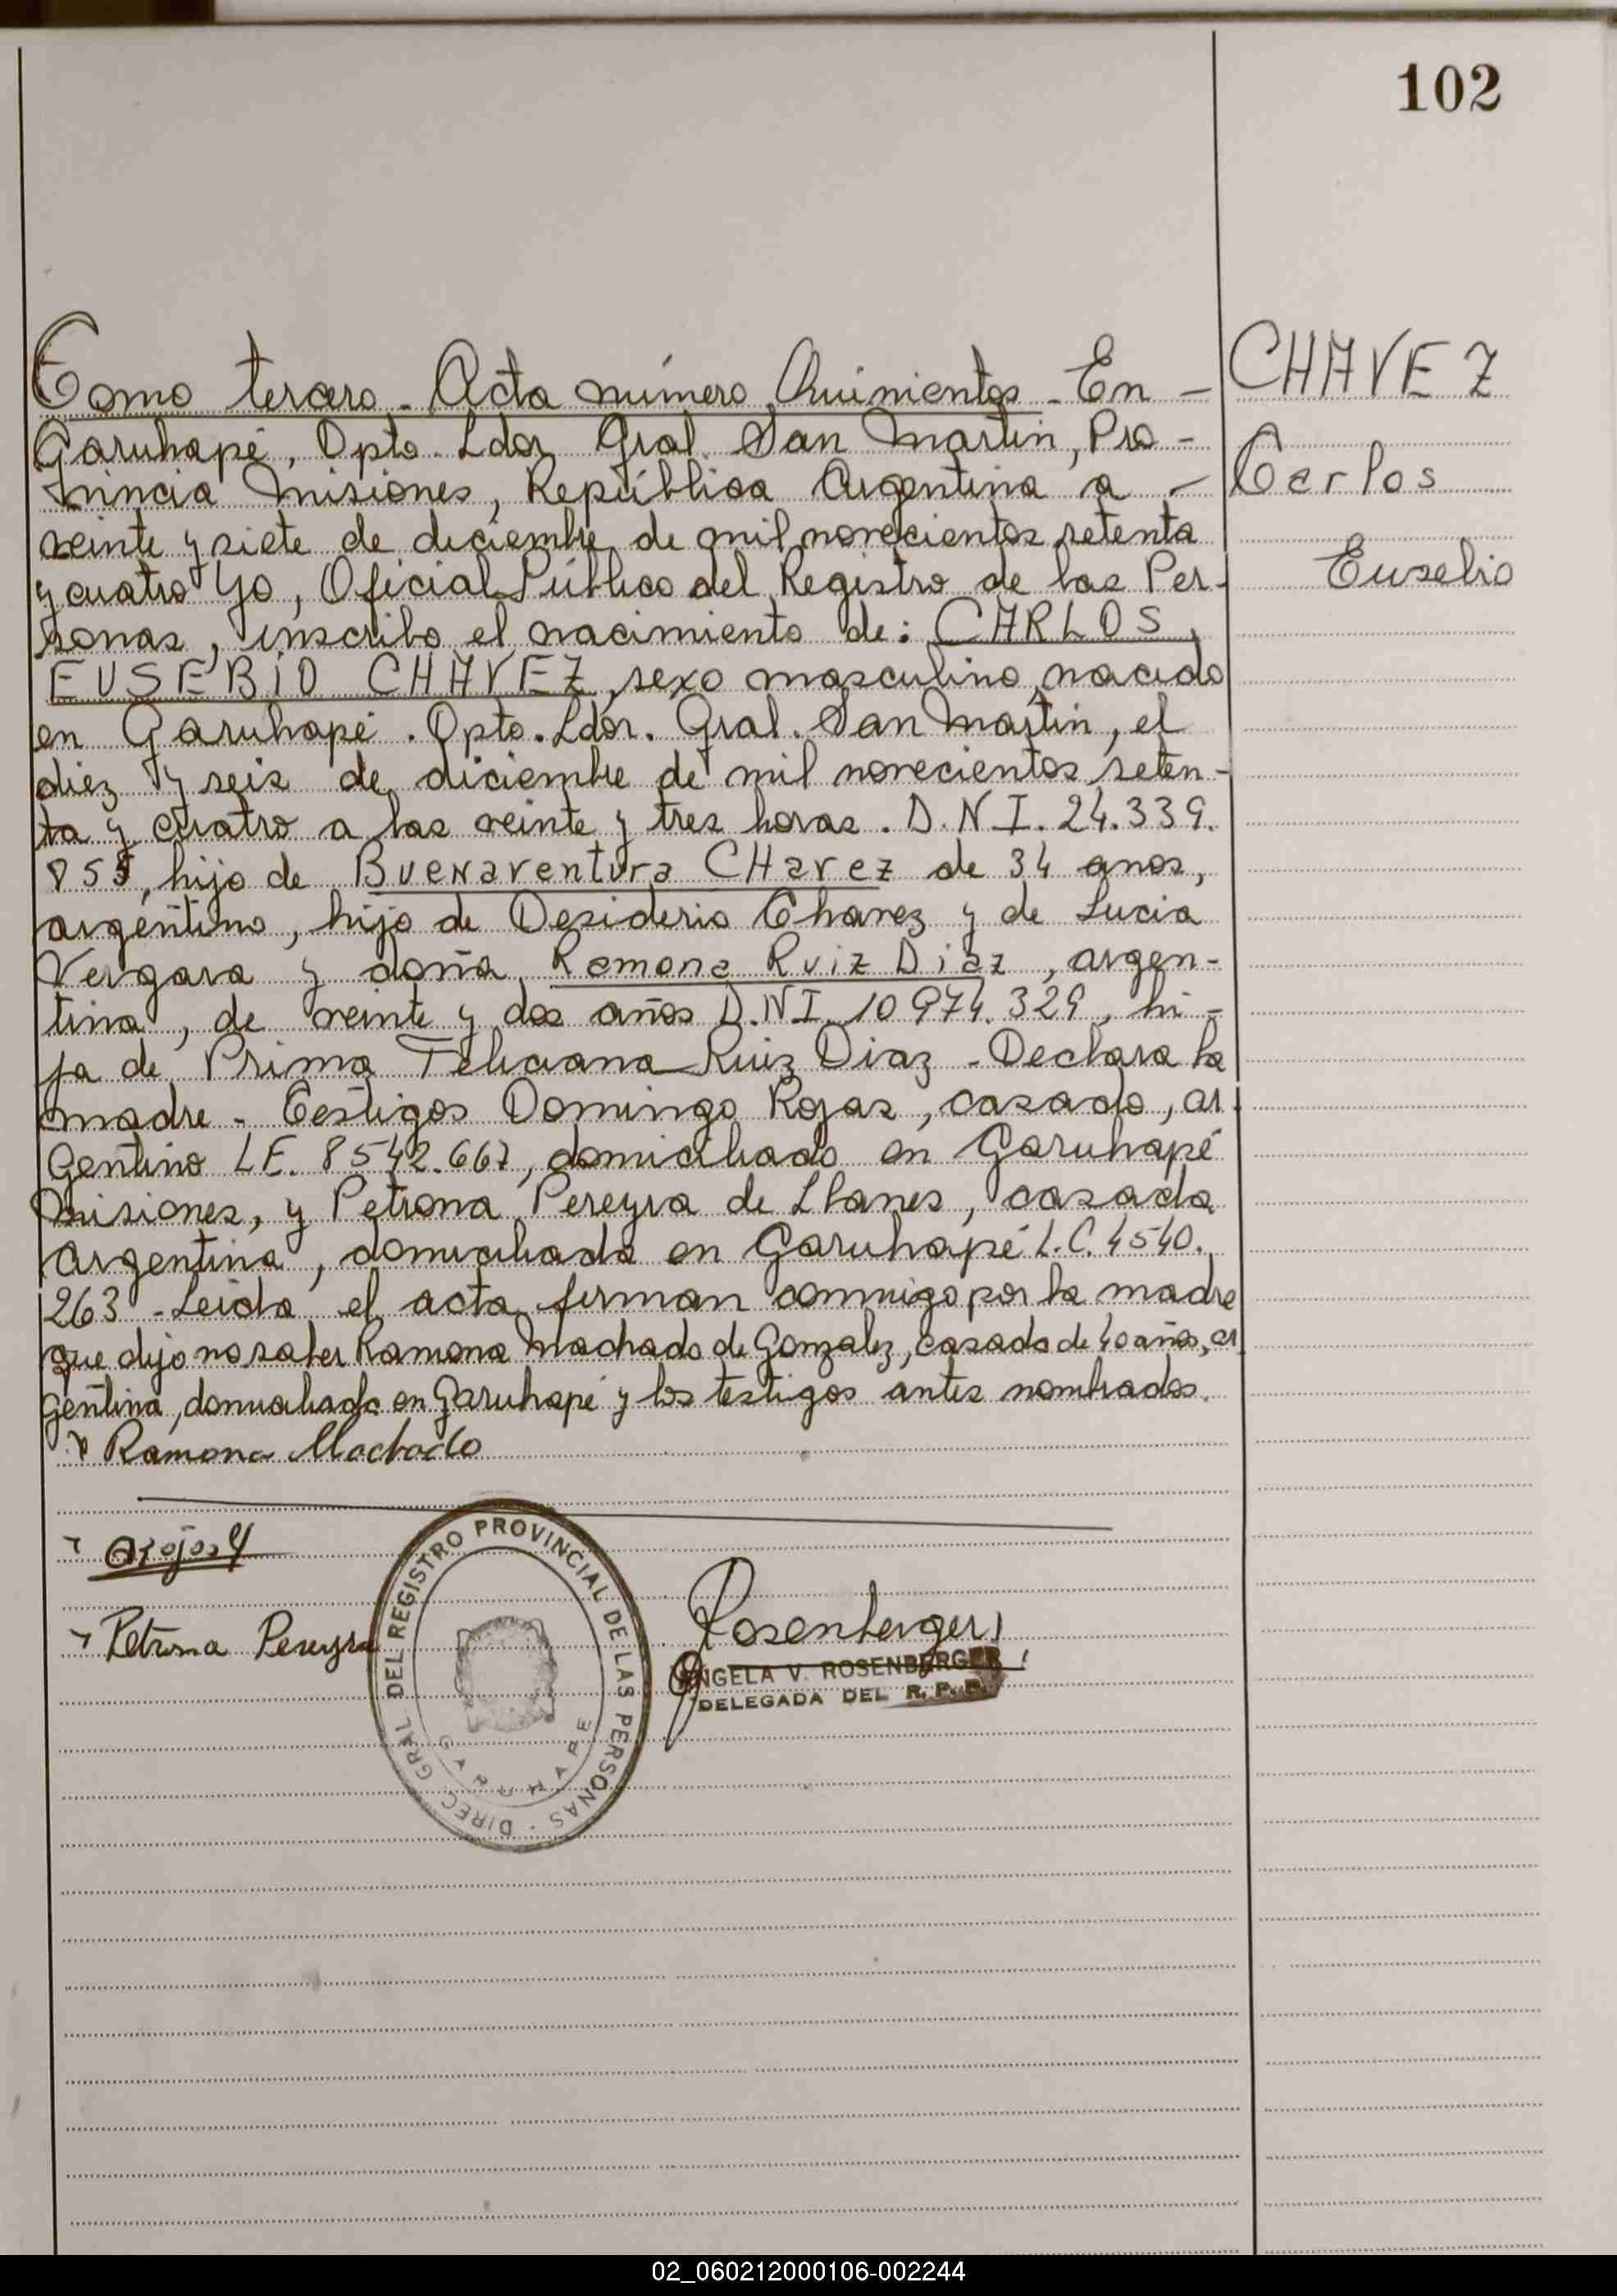 102
Tomo tercero - Acta número Quinientos - En -
Garuhapé, Dpto. Ldor Gral. San Martín, Pro -
vincia Misiones, República Argentina a -
veinte y siete de diciembre de mil novecientos setenta
y cuatro Yo, Oficial Público del Registro de las Per-
sonas, inscribo el nacimiento de: CARLOS
EUSEBIO CHAVEZ, sexo masculino, nacido
en Garuhapé. Dpto. Ldor. Gral. San Martín, el
diez y seis de diciembre de mil novecientos seten-
ta y cuatro a las veinte y tres horas. D.N.I. 24.339.
855, hijo de Buenaventura CHavez de 34 anos,
argentino, hijo de Desiderio Chavez y de Lucia
Vergara y doña Ramona Ruiz Diaz, argen-
tina, de veinte y dos años D.N.I. 10 974.329, hi -
ja de Prima Feliciana Ruiz Diaz - Declara la
madre - Testigos Domingo Rojas, casado, ar
gentino L.E. 8542.667, domiciliado en Garuhapé
Misiones, y Petrona Pereyra de Llanes, casada
argentina, domiciliada en Garuhapé L.C. 4540.
263 - Leida el acta firman conmigo por la madre
que dijo no saber Ramona Machado de Gonzalez, casada de 40 años, ar
gentina, domiciliada en Garuhapé y los testigos antes nombrados.
Ramona Machado
Petrona Pereyra
Rosenberger
ANGELA V. ROSENBERGER
DELEGADA DEL R. P. P.
DIREC. GRAL DEL REGISTRO PROVINCIAL DE LAS PERSONAS
GARUHAPE
CHAVEZ
Carlos
Eusebio
02_060212000106-002244